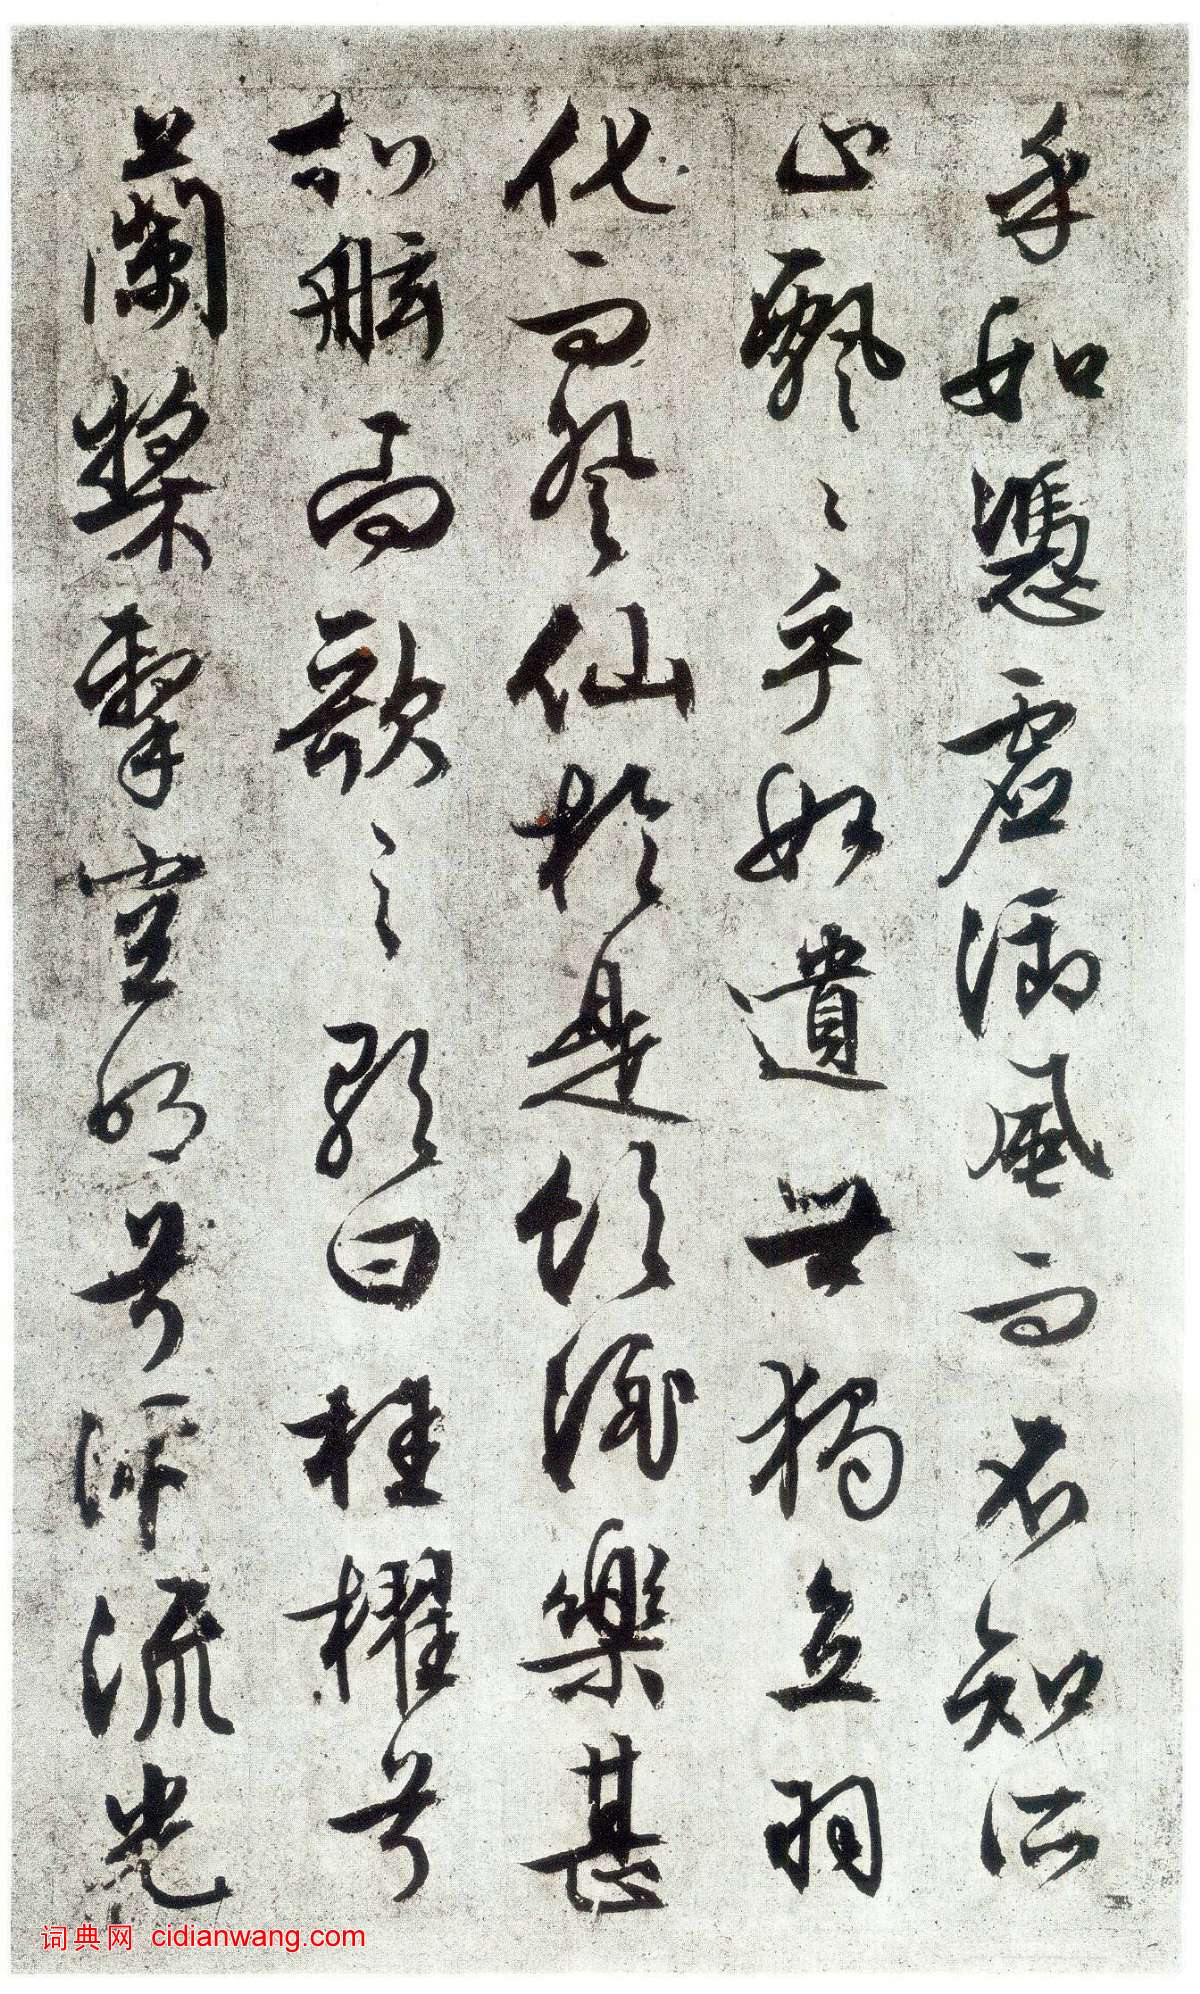 乎如憑虛御風而不知所
止飄〻乎如遺世獨立羽
化而登仙於是飲酒樂甚
扣舷而歌之歌曰桂櫂兮
蘭槳擊空明兮泝流光
词典网 cidianwang.com